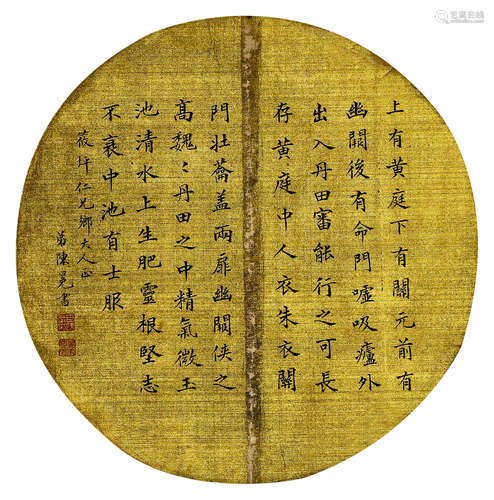 上有黄庭下有關元前有
幽闕後有命門噓吸廬外
出入丹田審能行之可長
存黄庭中人衣朱衣關
門壯蘥盖兩扉幽闕俠之
髙魏〻丹田之中精氣微玉
池清水上生肥靈根堅志
不衰中池有士服
仁兄鄉大人正
弟陳冕書